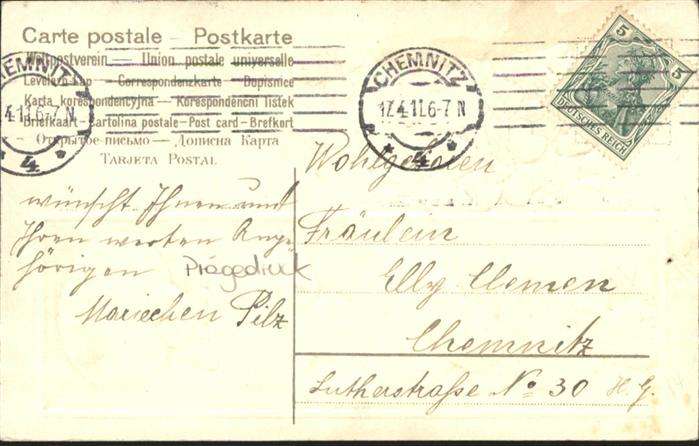 Carte postale – Postkarte
Weltpostverein — Union postale universelle
Levelező-Lap — Correspondenzkarte — Dopisnice
Karta korespondencyjna — Korespondenční listek
Briefkaart — Cartolina postale — Post card — Brefkort
Открытое письмо — Дописна Карта
TARJETA POSTAL
CHEMNITZ
17.4.11.6-7 N
4
CHEMNITZ
17.4.11.6-7 N
4
5
5
DEUTSCHES REICH
wünscht Ihnen und
Ihren werten Ange-
hörigen
Mariechen Pilz
Prägedruk
Wohlgeboren
Fräulein
Elly Clemen
Chemnitz
Lutherstraße No 30 H. G.